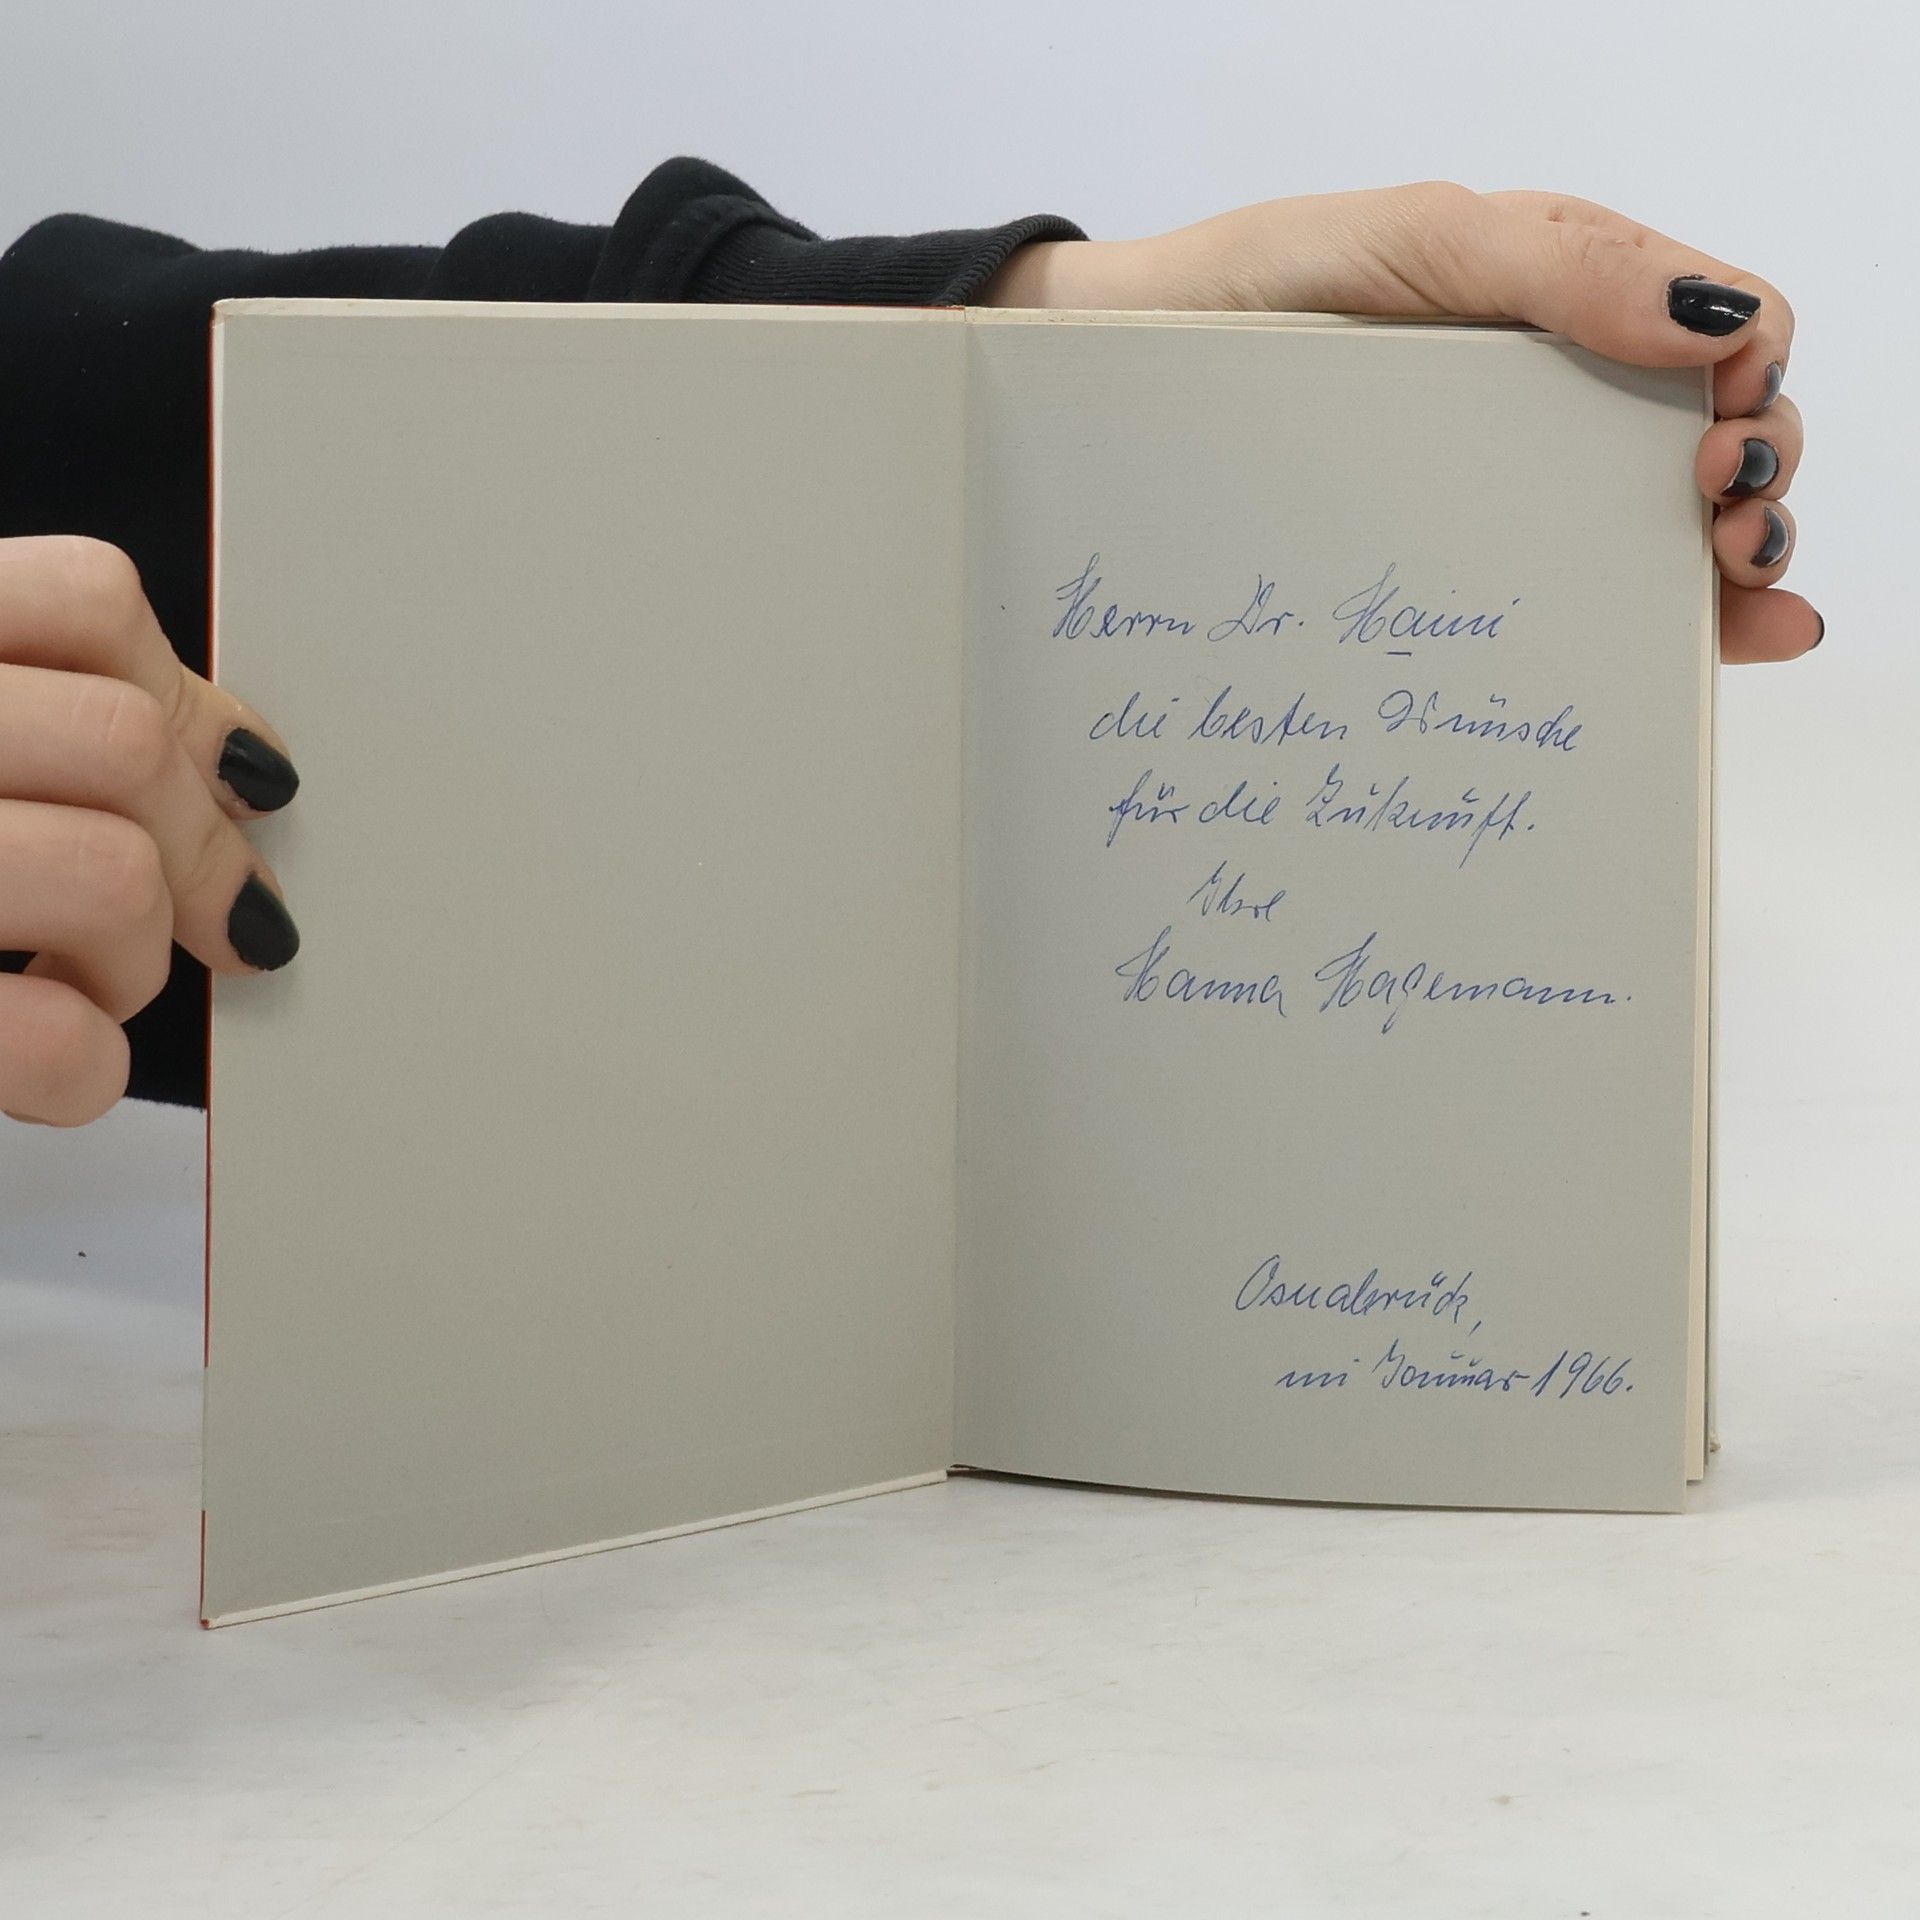 Herrn Dr. Haini
die besten Wünsche
für die Zukunft.
Ihre
Hanna Hagemann.
Osnabrück,
im Januar 1966.